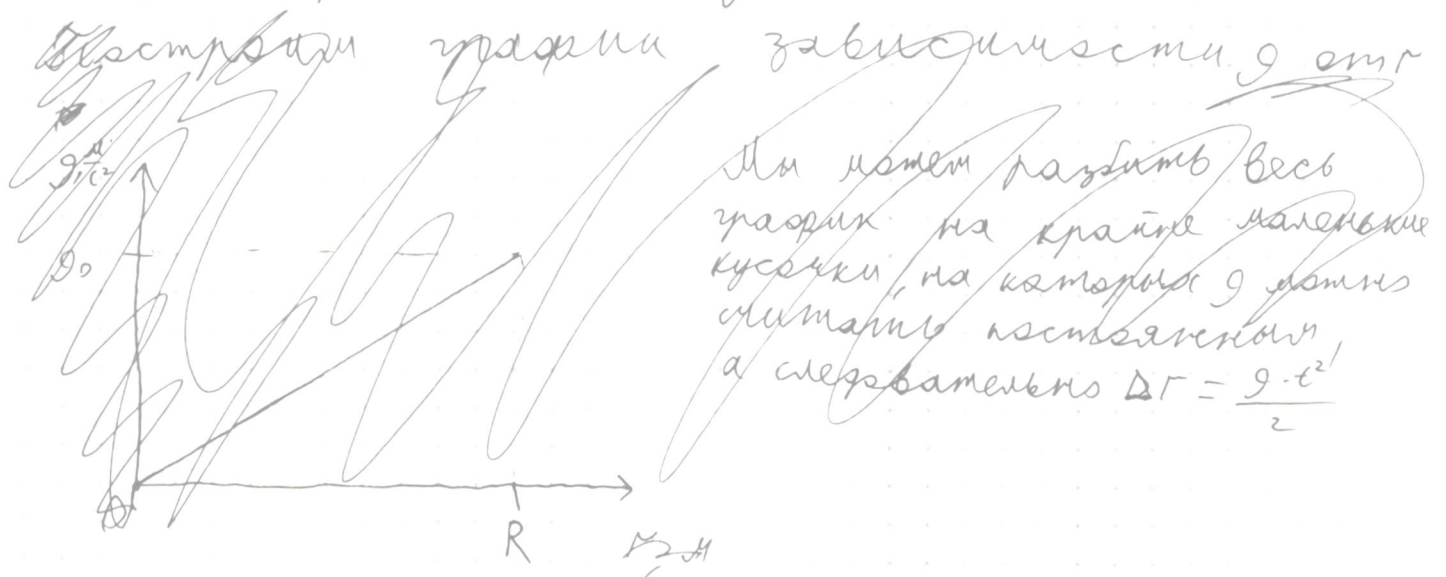 Построим график зависимости g от r
g, м/с²
g₀
Мы можем разбить весь
график на крайне маленькие
кусочки, на которых g можно
считать постоянным,
а следовательно Δr = g·t²/2
0
R
r, м